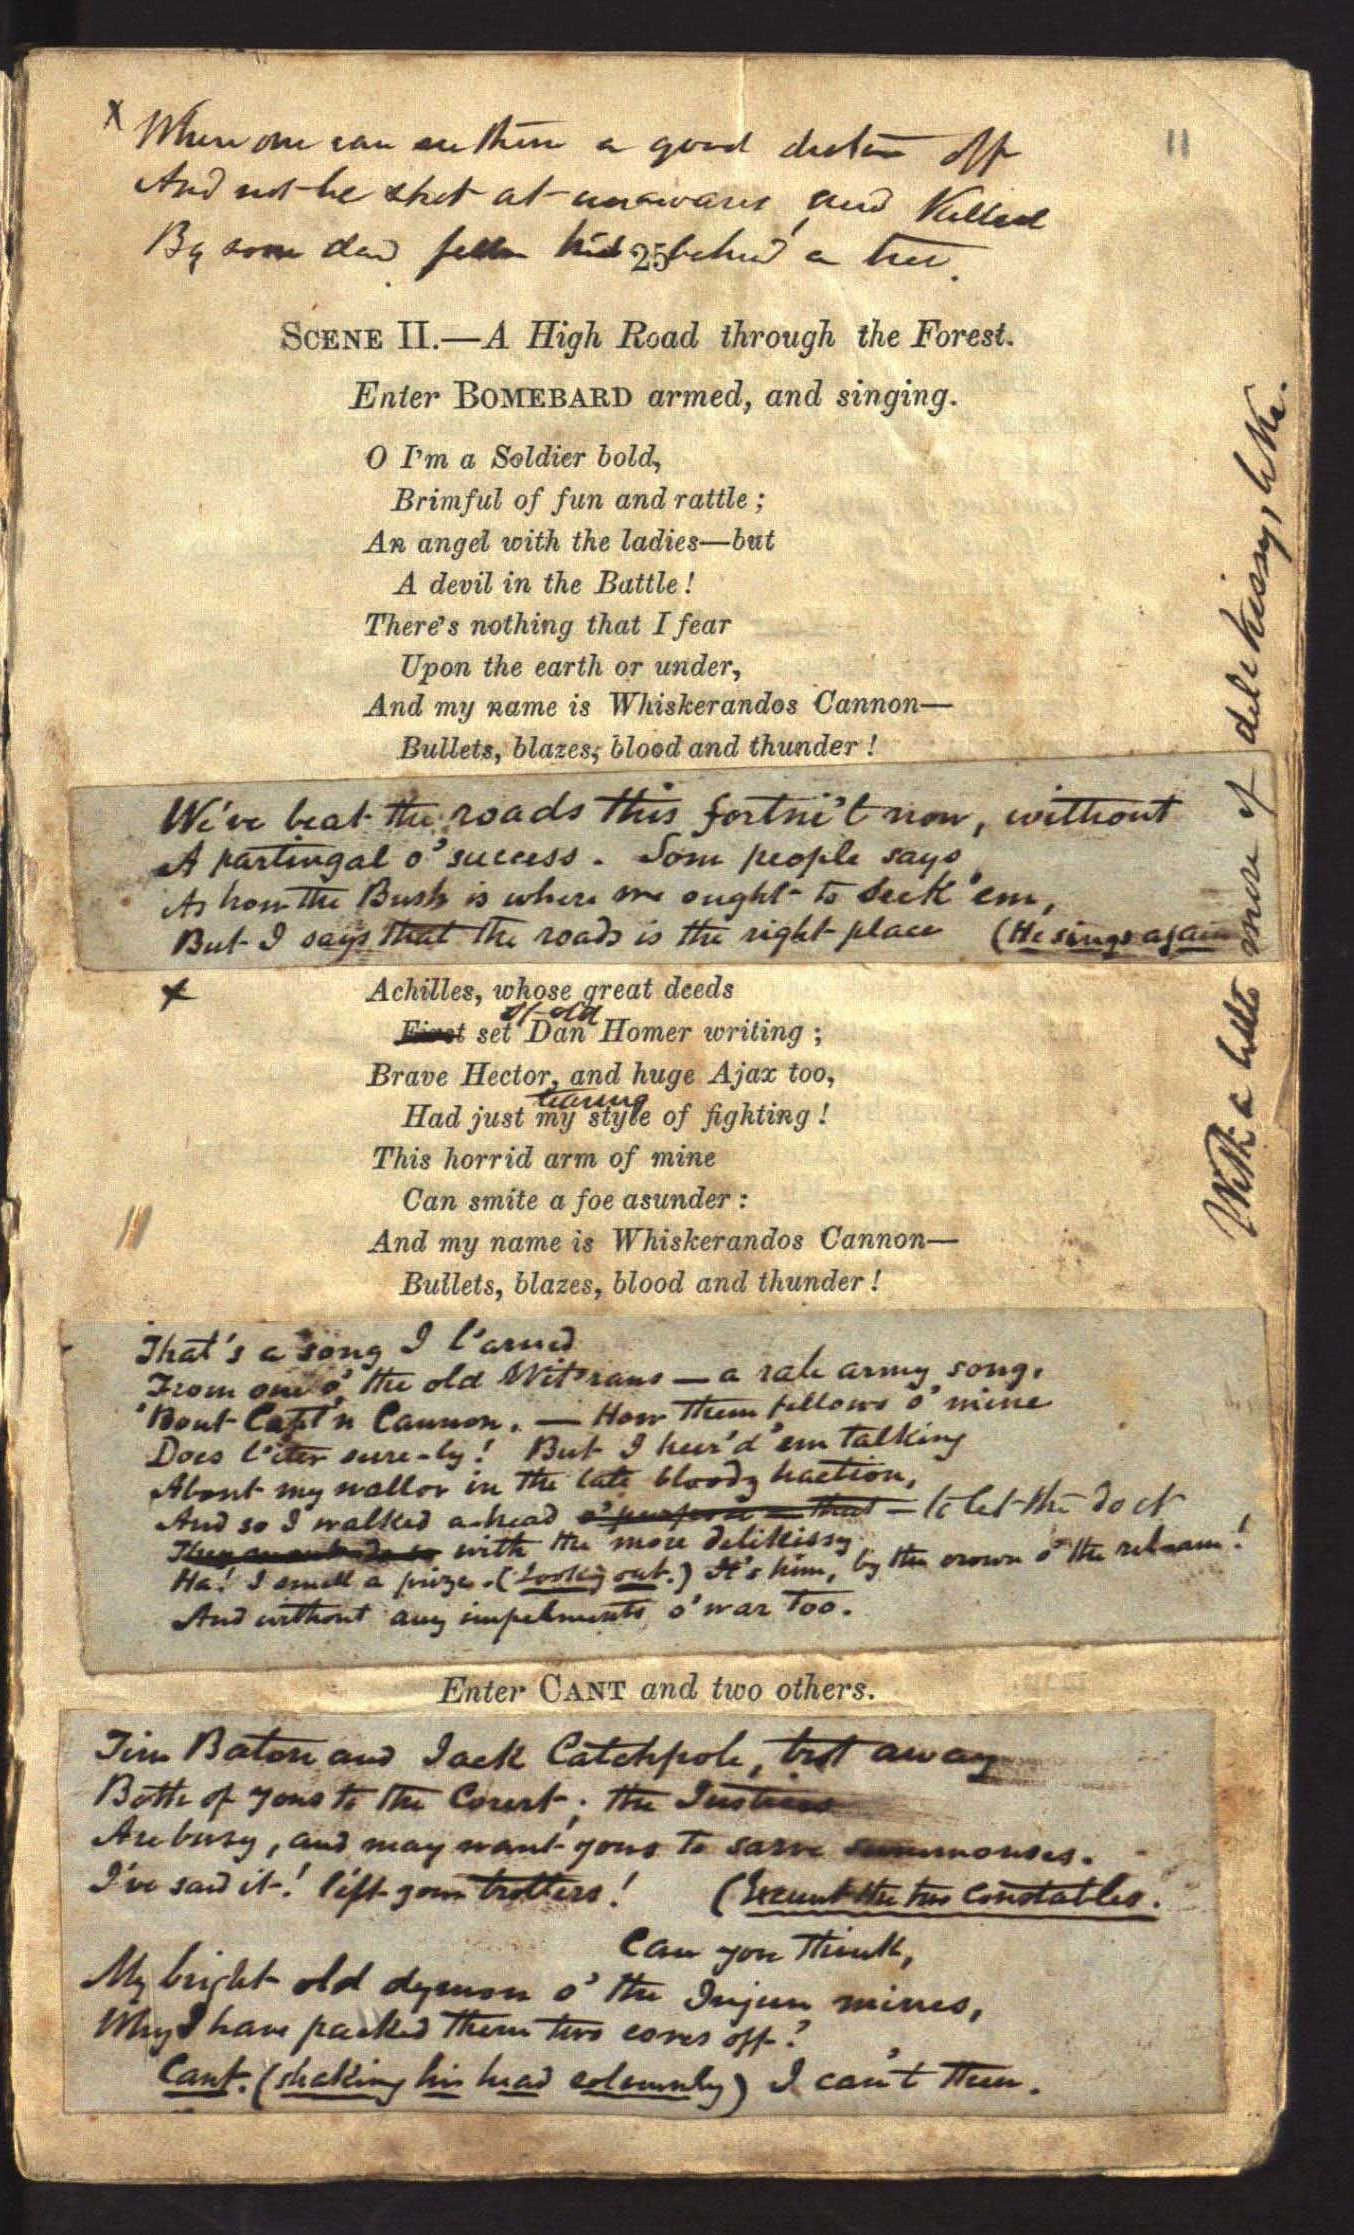 11
x Where one can see them a good distance off
And not be shot at unawares, and killed
By some dam feller hid behind a tree.
25
SCENE II.—A High Road through the Forest.
Enter BOMEBARD armed, and singing.
O I'm a Soldier bold,
Brimful of fun and rattle;
An angel with the ladies—but
A devil in the Battle!
There's nothing that I fear
Upon the earth or under,
And my name is Whiskerandos Cannon—
Bullets, blazes, blood and thunder!
We've beat the roads this fortni't now, without
A partingal o' success. Som people says
As how the Bush is where we ought to seek 'em,
But I says that the roads is the right place (He sings again
x Achilles, whose great deeds
of old
First set Dan Homer writing;
Brave Hector, and huge Ajax too,
tearing
Had just my style of fighting!
This horrid arm of mine
Can smite a foe asunder:
And my name is Whiskerandos Cannon—
Bullets, blazes, blood and thunder!
That's a song I l'arned
From one o' the old Wit'rans — a rale army song,
'Bout Capt'n Cannon. — How them fellows o' mine
Does l'iter sure-ly! But I heer'd 'em talking
About my wallor in the late bloody haction,
And so I walked a-head o' purpose — that — to let them do it
They do so with the more delikissy.
Ha! I smell a prize. (Looking out.) It's him, by the crown o' the
And without any impelments o' war too.
Enter CANT and two others.
Tim Baton and Jack Catchpole, trot away
Both of yous to the Court; the Justices
Are busy, and may want yous to sarve summonses.
I've said it! lift your trotters! (Exeunt the two constables.
Can you think,
My bright old dymon o' the Injun mines,
Why I have packed them two coves off?
Cant. (shaking his head solemnly) I can't then.
With a little more of delekissy, like.